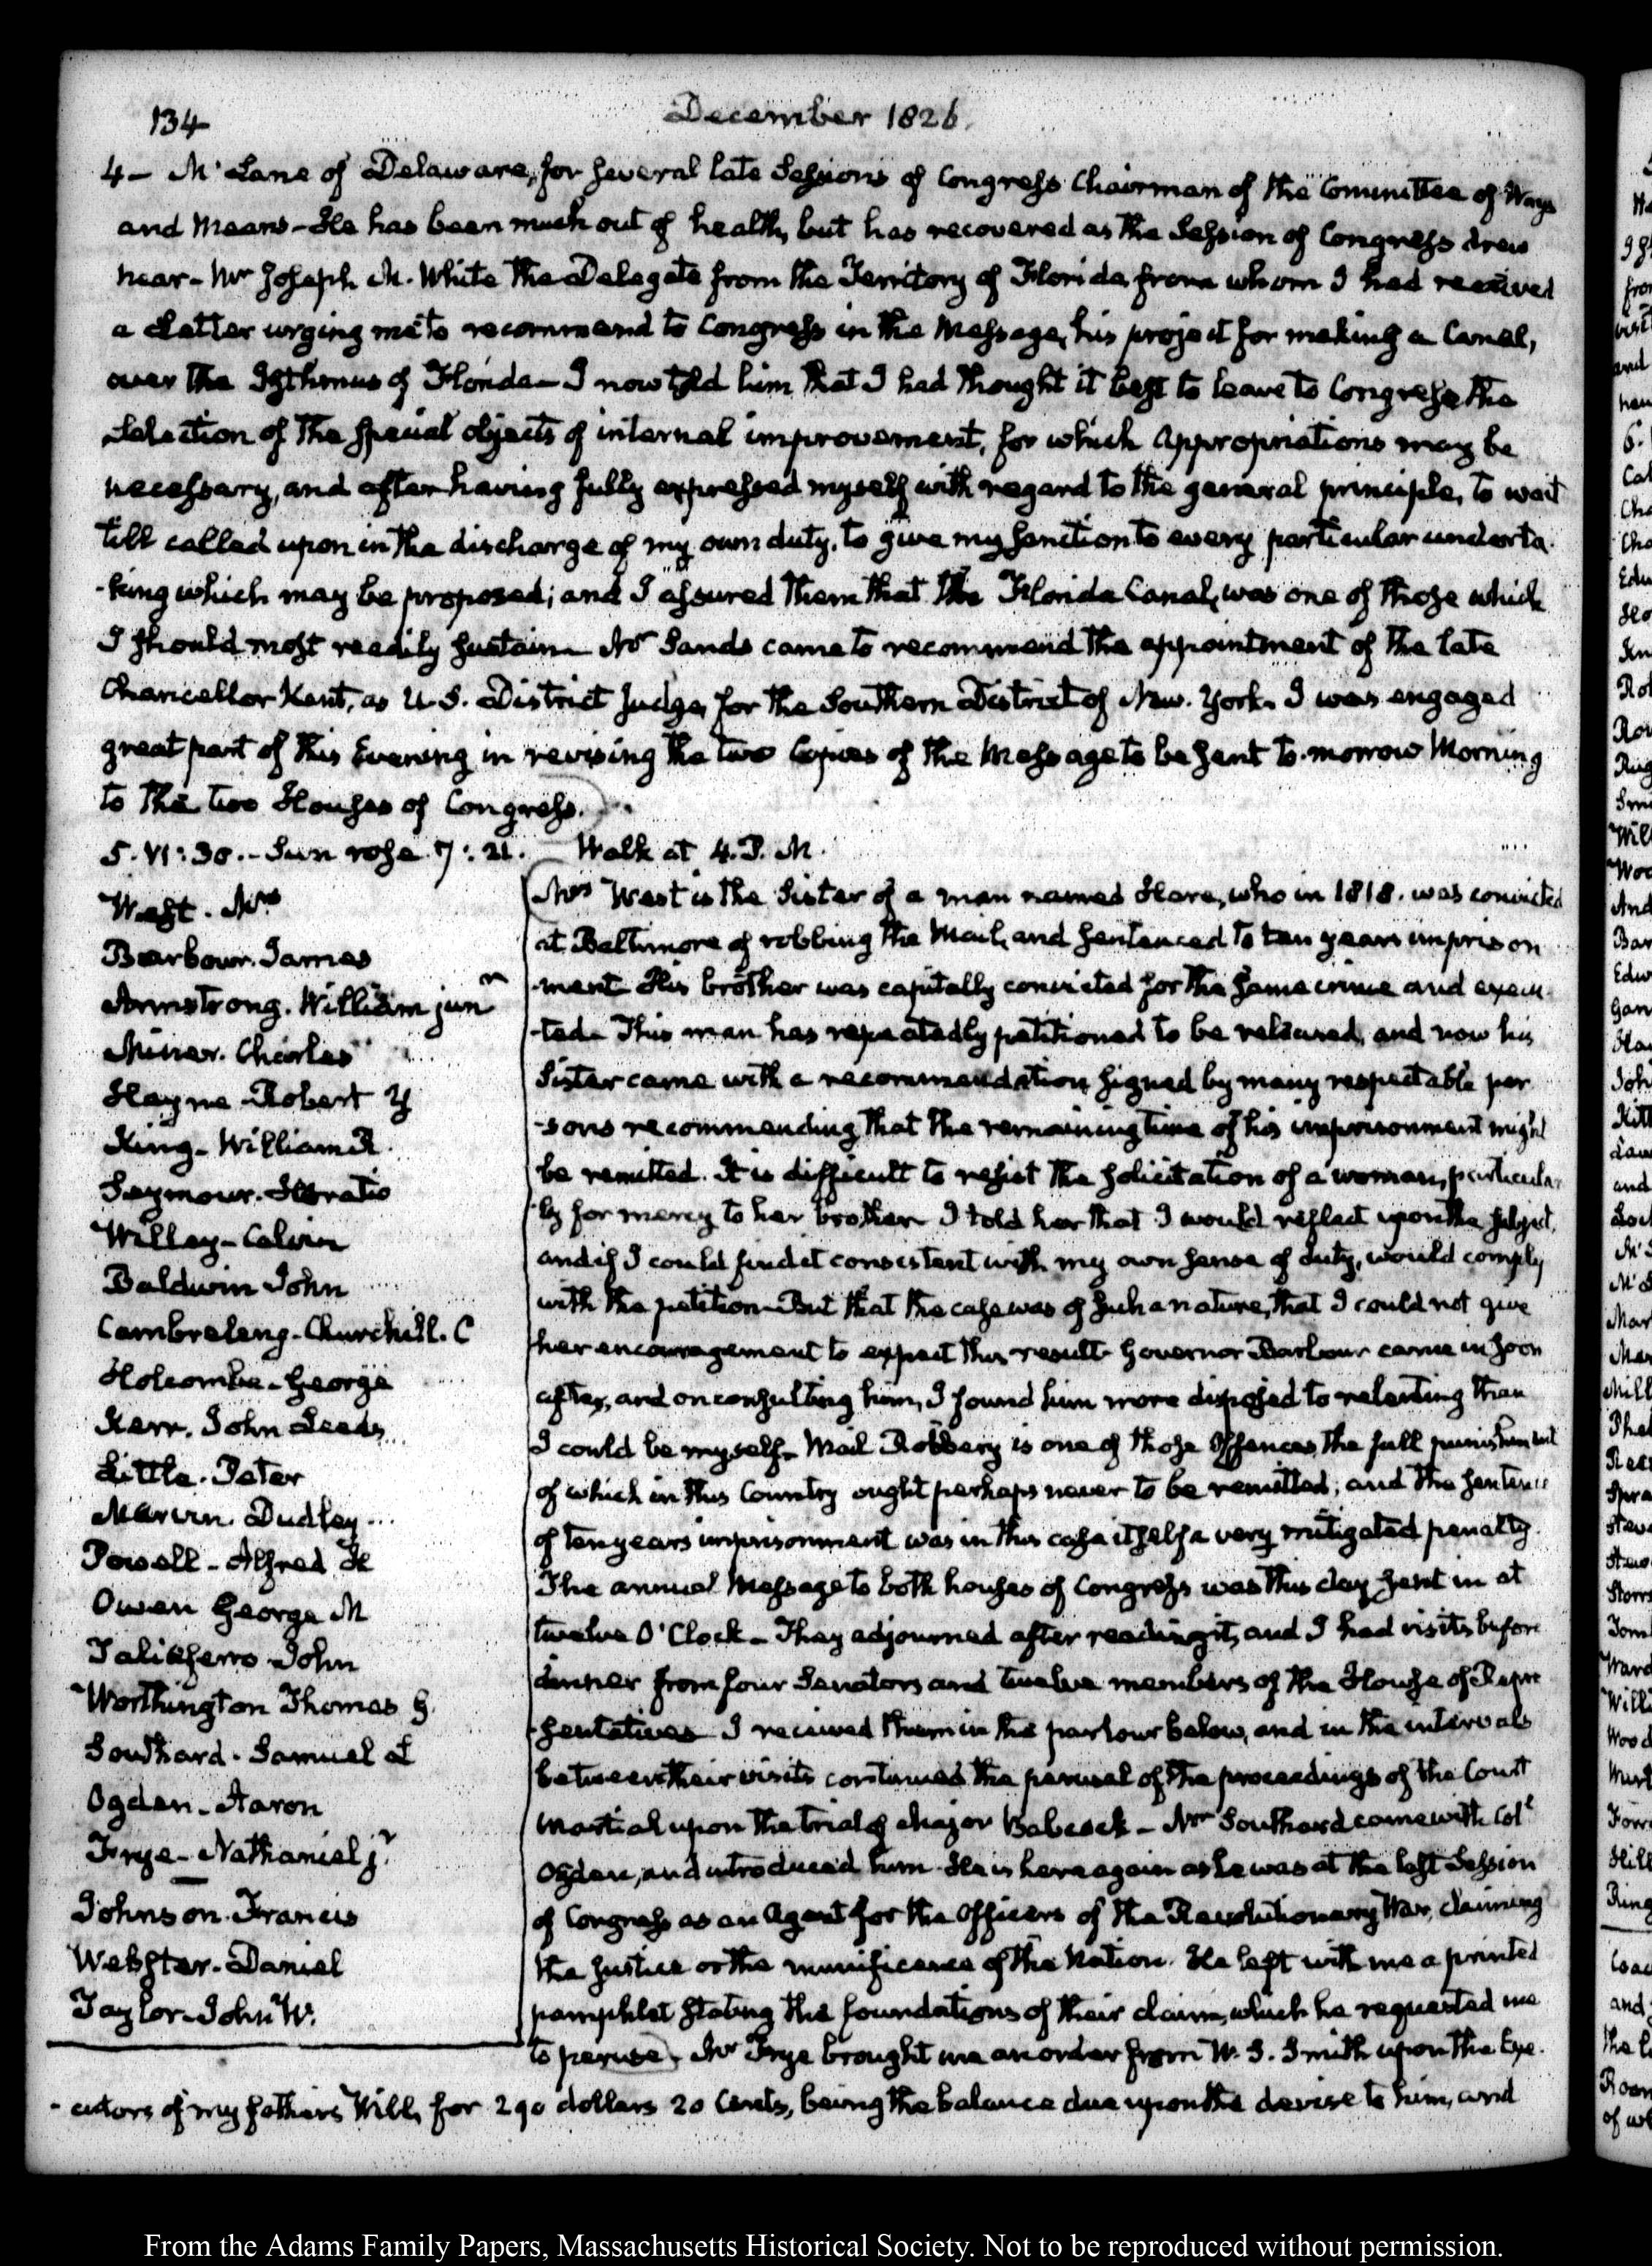 134
December 1826.
4– McLane of Delaware, for several late Sessions of Congress Chairman of the Committee of Ways
and Means – He has been much out of health, but has recovered as the Session of Congress drew
near – Mr Joseph M. White the Delegate from the Territory of Florida, from whom I had received
a Letter urging me to recommend to Congress in the Message, his project for making a Canal,
over the Isthmus of Florida – I now told him that I had thought it best to leave to Congress the
Selection of the special objects of internal improvement, for which appropriations may be
necessary, and after having fully expressed myself with regard to the general principle, to wait
till called upon in the discharge of my own duty, to give my sanction to every particular underta-
-king which may be proposed; and I assured them that the Florida Canal, was one of those which
I should most readily sustain – Mr Sands came to recommend the appointment of the late
Chancellor Kent, as U.S. District Judge, for the Southern District of New-York. I was engaged
great part of this Evening in revising the two Copies of the Message to be sent to-morrow Morning
to the two Houses of Congress.
5. VI:30. – Sun rose 7:21. – Walk at 4. P. M.
West. Mrs
Barbour. James
Armstrong. William junr
Miner. Charles
Hayne – Robert Y
King – William R.
Seymour. Horatio
Willey – Calvin
Baldwin John
Cambreleng – Churchill. C
Holcombe – George
Kerr. John Leeds
Little. Peter
Marvin. Dudley
Powell – Alfred H
Owen George M
Taliaferro John
Worthington Thomas G.
Southard. Samuel L
Ogden – Aaron
Frye – Nathaniel jr
Johnson. Francis
Webster. Daniel
Taylor – John W.
Mrs West is the Sister of a man named Hare, who in 1818. was convicted
at Baltimore of robbing the Mail, and sentenced to ten years imprison
-ment – His brother was capitally convicted for the same crime and execu-
-ted – This man has repeatedly petitioned to be released, and now his
Sister came with a recommendation signed by many respectable per
-sons recommending that the remaining time of his imprisonment might
be remitted. It is difficult to resist the solicitation of a woman, particular
-ly for mercy to her brother – I told her that I would reflect upon the subject,
and if I could find it consistent with my own sense of duty, would comply
with the petition – But that the case was of such a nature, that I could not give
her encouragement to expect this result – Governor Barbour came in soon
after, and on consulting him, I found him more disposed to relenting than
I could be myself – Mail Robbery is one of those Offences the full punishment
of which in this Country ought perhaps never to be remitted; and the sentence
of ten years imprisonment was in this case itself a very mitigated penalty.
The annual Message to both houses of Congress was this day sent in at
twelve O'Clock – They adjourned after reading it, and I had visits before
dinner from four Senators and twelve members of the House of Repre
-sentatives – I received them in the parlour below, and in the intervals
between their visits continued the perusal of the proceedings of the Court
Martial upon the trial of Major Babcock – Mr Southard came with Coll
Ogden, and introduced him – He is here again as he was at the last Session
of Congress as an Agent for the Officers of the Revolutionary War, claiming
the justice or the munificence of the Nation. He left with me a printed
pamphlet stating the foundations of their claim, which he requested me
to peruse – Mr Frye brought me an order from W. S. Smith upon the Exe-
-cutors of my father's Will, for 290 dollars 20 Cents, being the balance due upon the devise to him, and
From the Adams Family Papers, Massachusetts Historical Society. Not to be reproduced without permission.